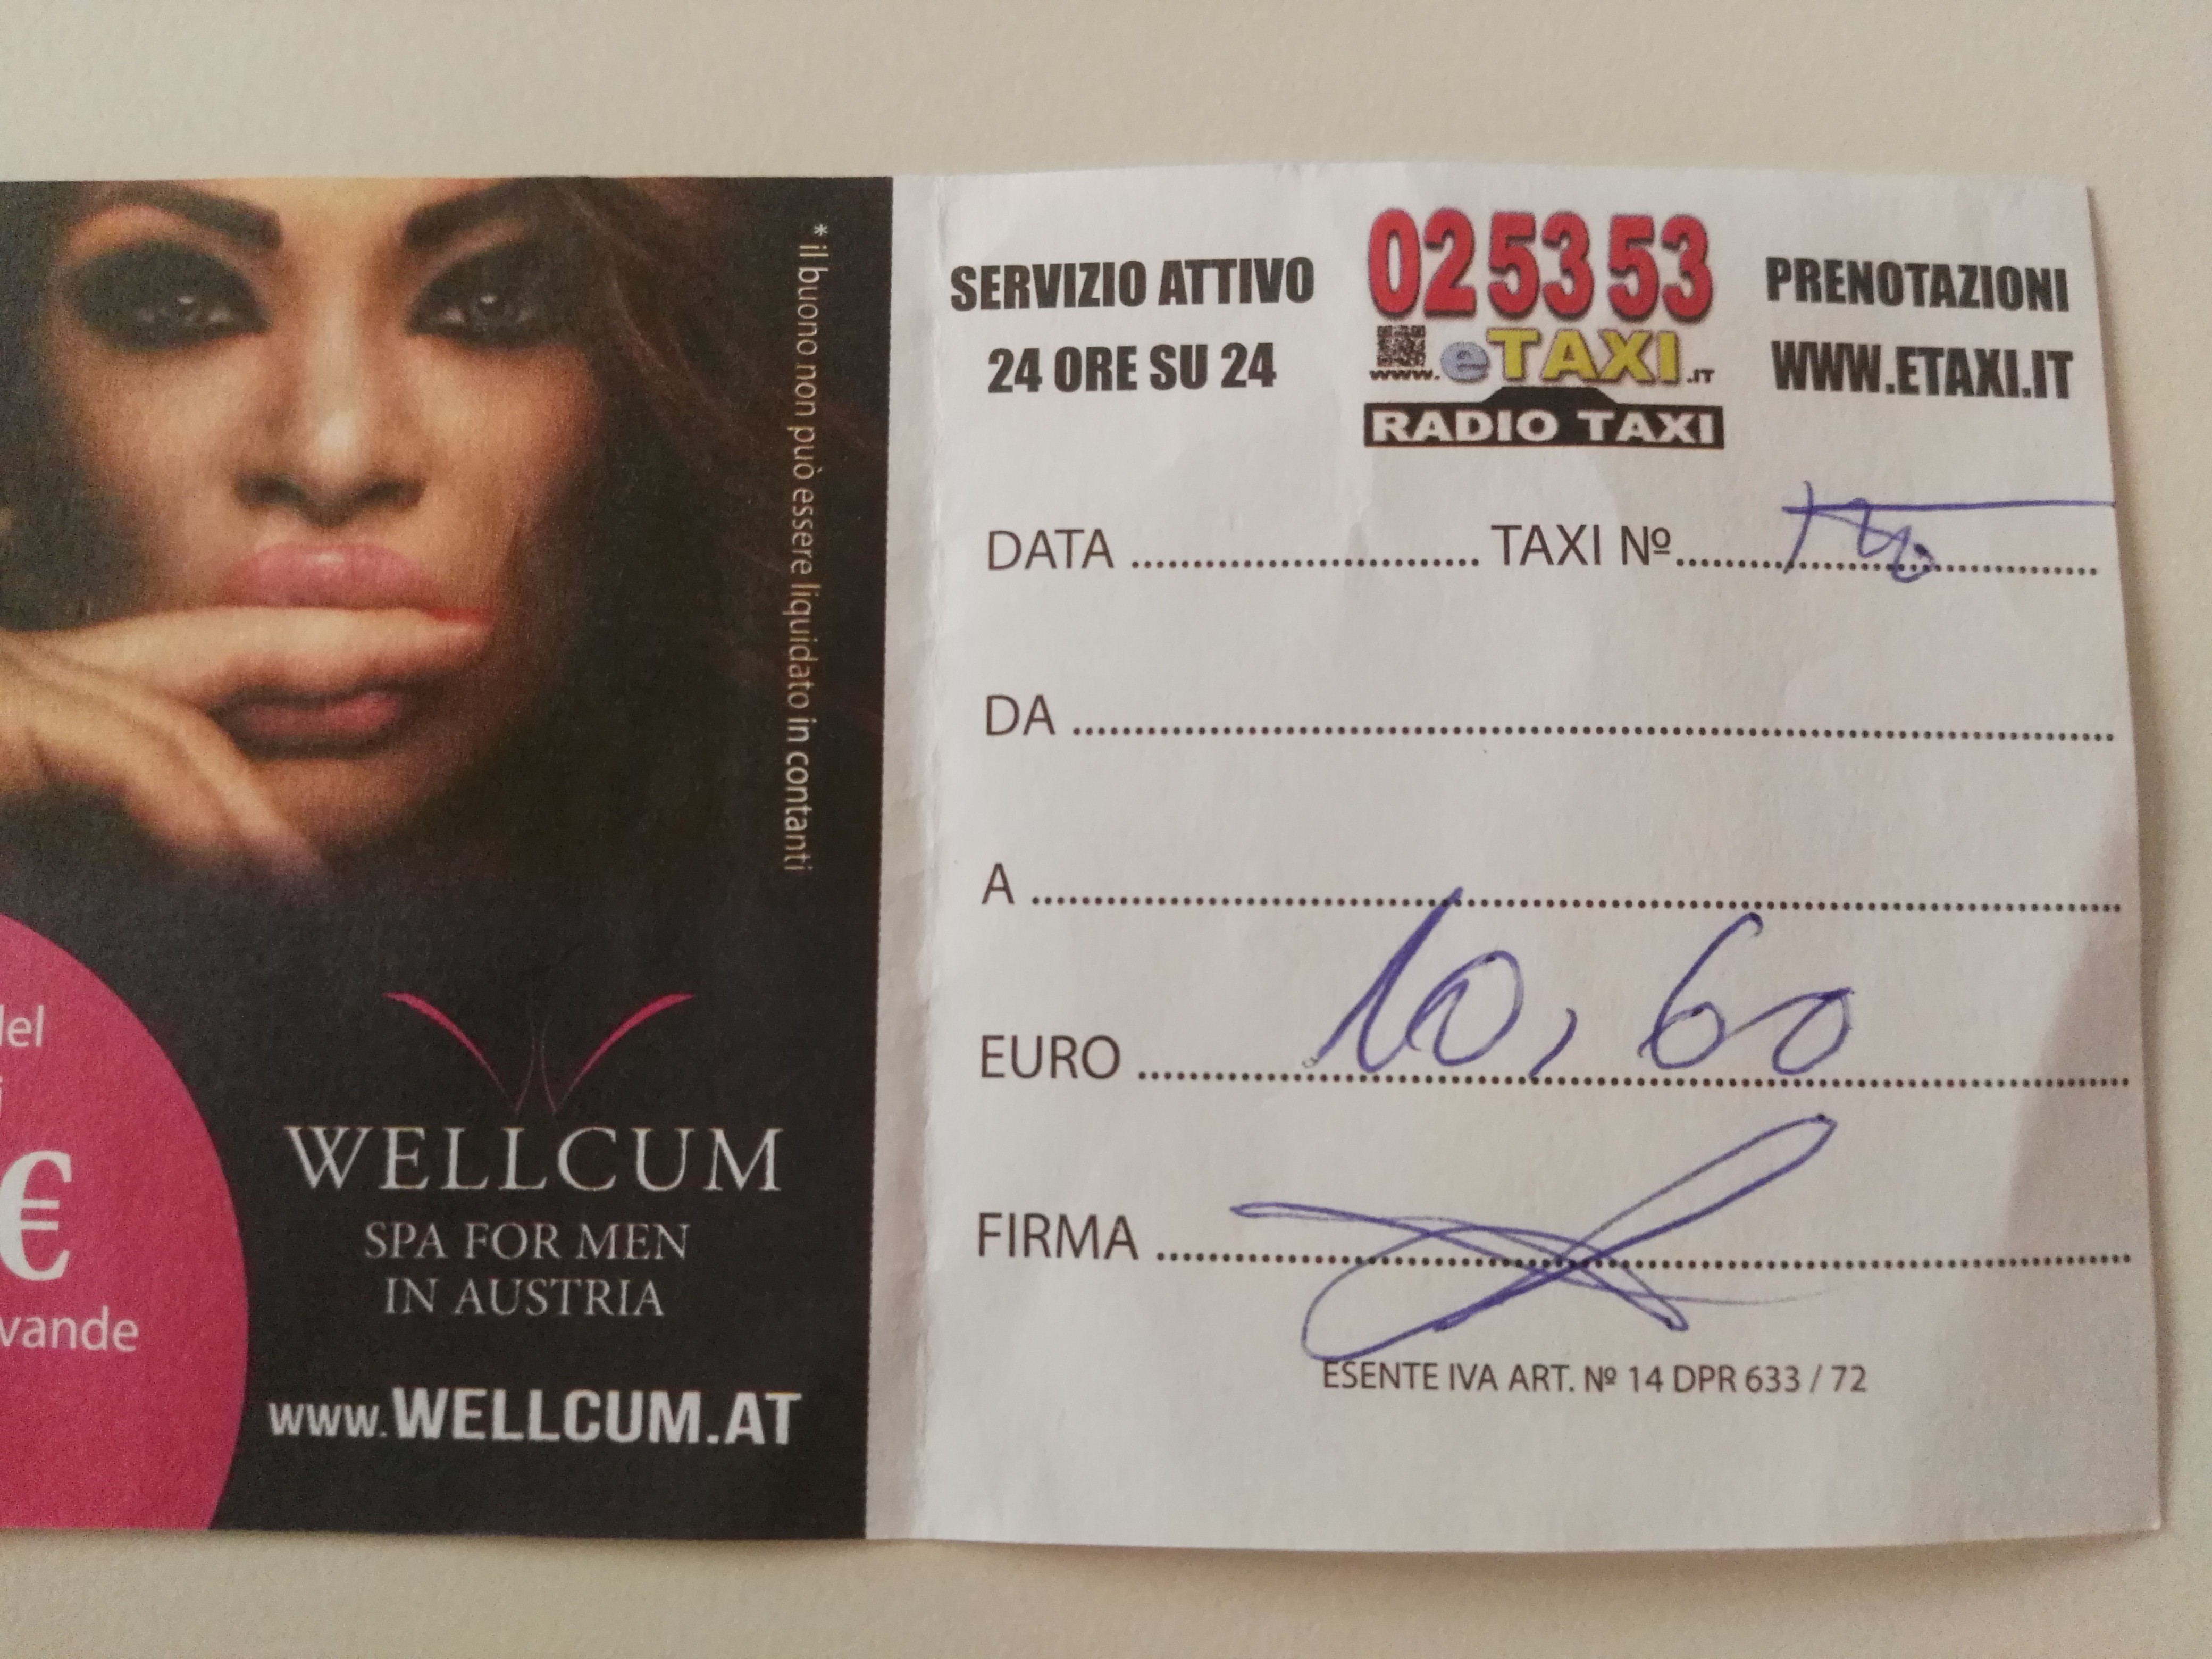 * il buono non può essere liquidato in contanti
del
i
€
vande
WELLCUM
SPA FOR MEN
IN AUSTRIA
www.WELLCUM.AT
SERVIZIO ATTIVO
24 ORE SU 24
02 53 53
www.eTAXI.IT
RADIO TAXI
PRENOTAZIONI
WWW.ETAXI.IT
DATA .......................... TAXI Nº..........
DA ..........
A ..........
EURO 10,60
FIRMA ..........
ESENTE IVA ART. Nº 14 DPR 633 / 72